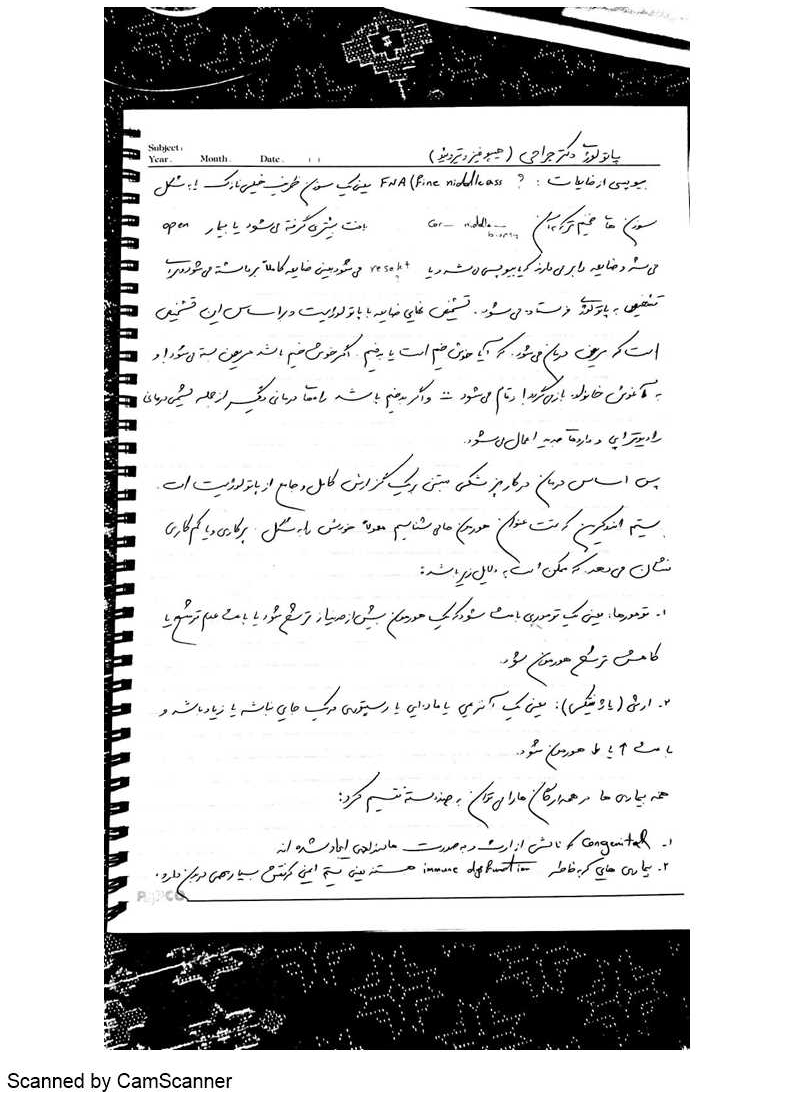 Subject:
Year. Month. Date. ( )
پاتولوژی دکتر جراحی (هیپوفیز و تیروئید)
بیوپسی از ضایعات : ? FNA (fine niddle ass یعنی یک سوزن ظریف خیلی نازک را به شکل
سوزن ها ضخیم تر که به آن Cor niddle biopsy بافت بیشتری گرفته می شود یا بیمار open
می شه و ضایعه را بر می دارند که یا بیوپسی می شه و یا resekt می شود یعنی ضایعه کاملاً برداشته می شود و برای
تشخیص به پاتولوژی فرستاده می شود. تشخیص نهایی ضایعه با پاتولوژیست و بر اساس این تشخیص
است که مریض درمان می شود. که آیا خوش خیم است یا بدخیم. اگر خوش خیم باشد مریض بسته می شود! و
به آغوش خانواده باز می گردد! و تمام می شود :: و اگر بدخیم باشد راهها درمانی دیگر از جمله شیمی درمانی
رادیوتراپی و داروهای جدید اعمال می شود.
پس اساس درمان در کار پزشکی مبتنی بر یک گزارش کامل و جامع از پاتولوژیست است.
سیستم اندوکرین که تحت عنوان هورمون ها می شناسیم معمولاً خودش را به شکل پرکاری و یا کم کاری
نشان می دهد. که ممکن است به دلایل زیر باشد:
۱- تومورها: یعنی یک توموری باعث شود که یک هورمون بیش از حد نیاز ترشح شود یا باعث عدم ترشح یا
کاهش ترشح هورمون شود.
۲- ارثی (یا ژنتیکی): یعنی یک آنزیمی یا ماده ایی یا رسپتوری در یک جایی نباشه یا زیاد باشه و
باعث ↑ یا ↓ هورمون شود.
همه بیماری ها در همه ارگان ها را می توان به چند دسته تقسیم کرد:
۱- congenital که ناشی از ارث و به صورت مادرزادی ایجاد شده اند
۲- بیماری هایی که به خاطر immune dysfunction هستند یعنی سیستم ایمنی که نقش بسیار مهمی در بدن دارد.
PAPCO
Scanned by CamScanner